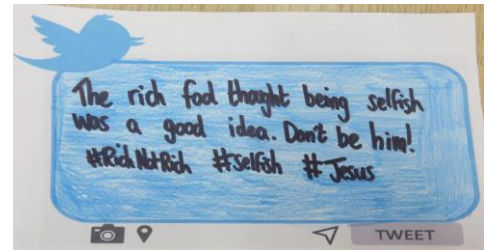 The rich fool thought being selfish
was a good idea. Don't be him!
#RichNotRich #selfish #Jesus
TWEET